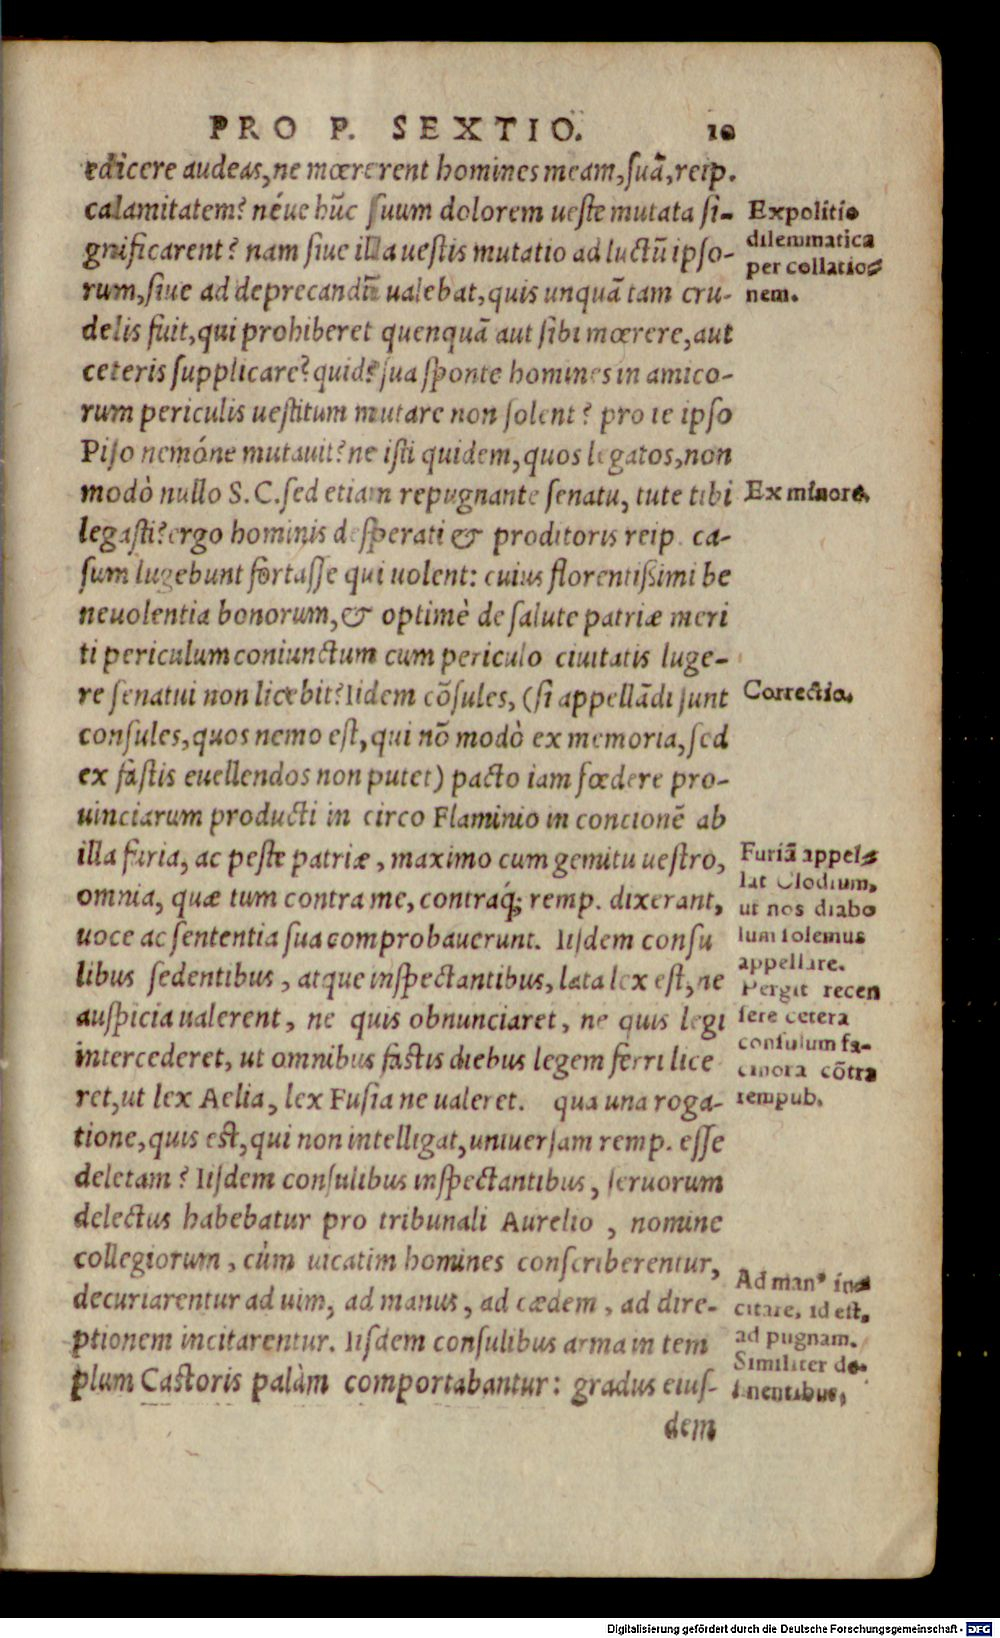 PRO P. SEXTIO. 10
edicere audeas, ne mœrerent homines meam, suã, reip.
calamitatem? néue hũc suum dolorem ueste mutata si-
gnificarent? nam siue illa uestis mutatio ad luctũ ipso-
rum, siue ad deprecandũ ualebat, quis unquã tam cru-
delis fuit, qui prohiberet quenquã aut sibi mœrere, aut
ceteris supplicare? quid? sua sponte homines in amico-
rum periculis uestitum mutare non solent? pro te ipso
Piso nemóne mutauit? ne isti quidem, quos legatos, non
modò nullo S. C. sed etiam repugnante senatu, tute tibi
legasti? ergo hominis desperati & proditoris reip. ca-
sum lugebunt fortasse qui uolent: cuius florentissimi be
neuolentia bonorum, & optimè de salute patriæ meri
ti periculum coniunctum cum periculo ciuitatis luge-
re senatui non licebit? Iidem cõsules, (si appellãdi sunt
consules, quos nemo est, qui nõ modò ex memoria, sed
ex fastis euellendos non putet) pacto iam fœdere pro-
uinciarum producti in circo Flaminio in concionẽ ab
illa furia, ac peste patriæ, maximo cum gemitu uestro,
omnia, quæ tum contra me, contraq́; remp. dixerant,
uoce ac sententia sua comprobauerunt. Iisdem consu
libus sedentibus, atque inspectantibus, lata lex est, ne
auspicia ualerent, ne quis obnunciaret, ne quis legi
intercederet, ut omnibus fastis diebus legem ferri lice
ret, ut lex Aelia, lex Fusia ne ualeret. qua una roga-
tione, quis est, qui non intelligat, uniuersam remp. esse
deletam? Iisdem consulibus inspectantibus, seruorum
delectus habebatur pro tribunali Aurelio, nomine
collegiorum, cùm uicatim homines conscriberentur,
decuriarentur ad uim, ad manus, ad cædem, ad dire-
ptionem incitarentur. Iisdem consulibus arma in tem
plum Castoris palàm comportabantur: gradus eius-
dem
Expolitio
dilemmatica
per collatio-
nem.
Ex minore.
Correctio.
Furiã appel-
lat Clodium,
ut nos diabo
lum solemus
appellare.
Pergit recen
sere cetera
consulum fa-
cinora cõtra
rempub.
Ad man⁹ in-
citare, id est,
ad pugnam.
Similiter de-
sinentibus,
Digitalisierung gefördert durch die Deutsche Forschungsgemeinschaft - DFG